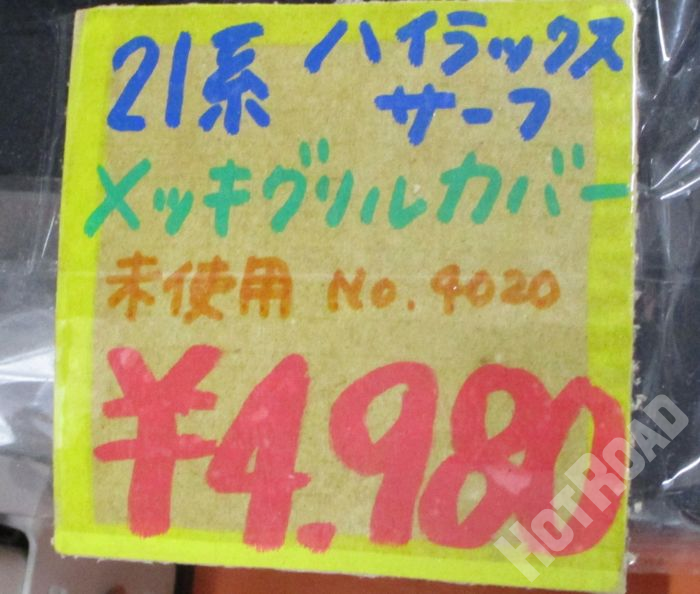 21系 ハイラックス
サーフ
メッキグリルカバー
未使用 No.9020
¥4.980
HOTROAD